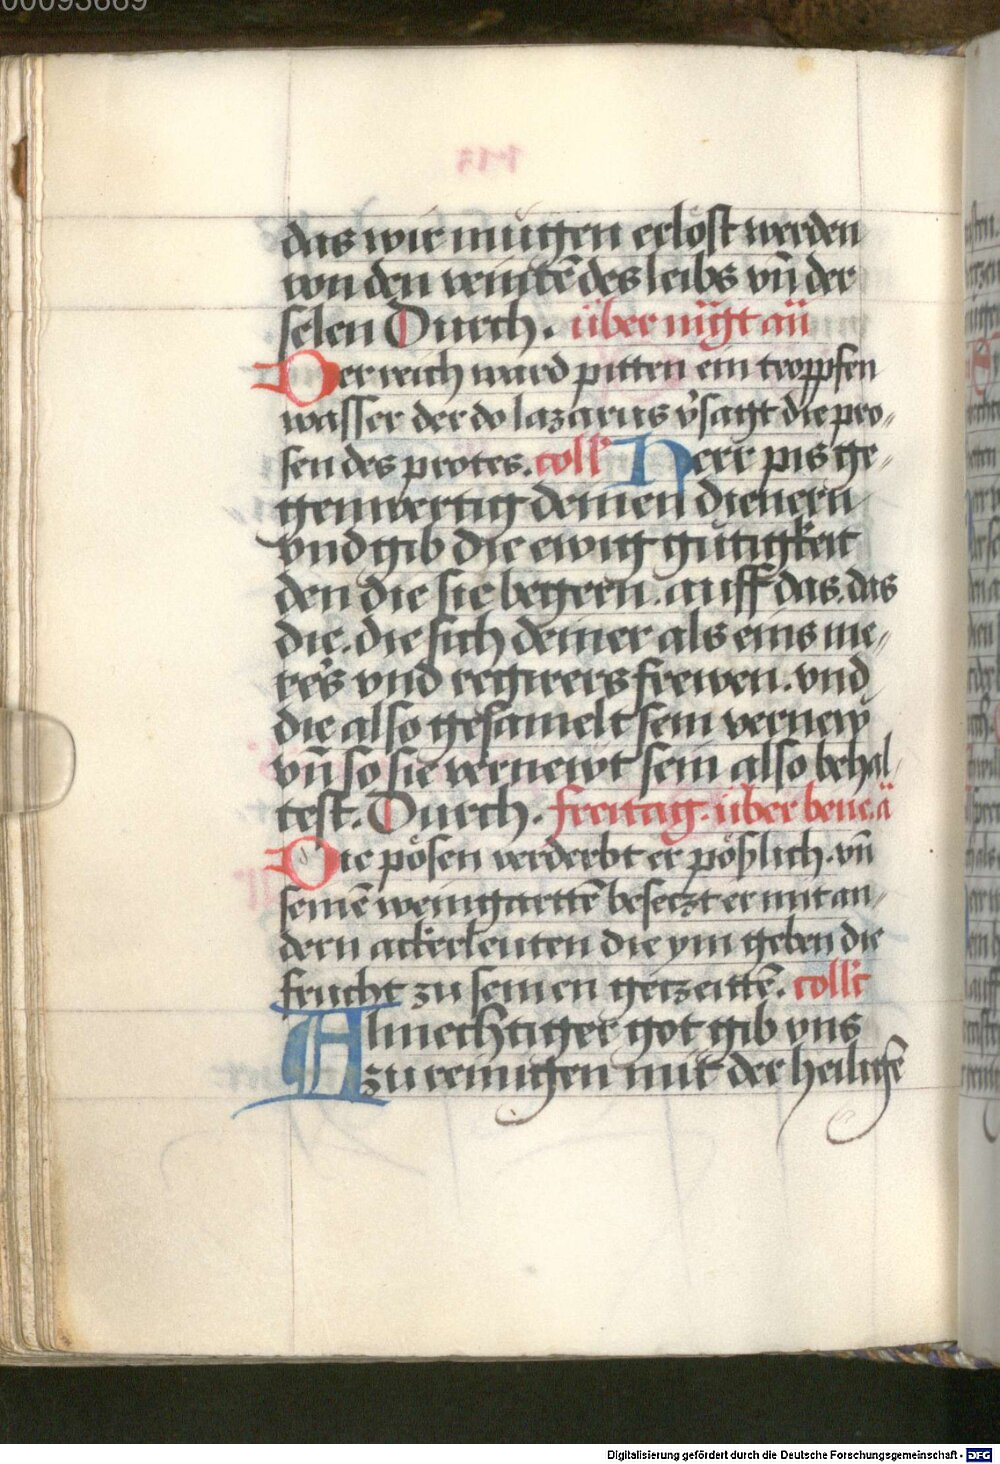 00093669
das wir mugen erlöst werden
von den veintē des leibs vn̄ der
selen Durch. über
Der reich ward pitten ein troppfen
wasser der do lazarus v̓sagt die pro-
sen des protes. coll̓ Herr pis ge-
genwertig deinen dienern
vnd gib die ewig gütigkeit
den die sie begern. auff das. das
die. die sich deiner als eins me-
rers vnd regirers frewen. vnd
die also gesamelt sein vernew
vn̄ so sie vernewt sein also behal-
test. Durch. freitag. über bene. ā
Die pösen verderbt er pößlich. vn̄
seinē weingarttē beseczt er mit an-
dern ackerleuten die ym geben die
frucht zu seinen geczeittē. coll̓c
Almechtiger got gib vns
zu reinigen mit der heiligē
Digitalisierung gefördert durch die Deutsche Forschungsgemeinschaft - DFG